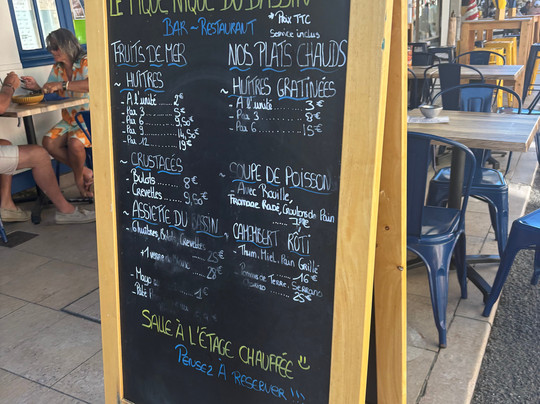 LE PIQUE NIQUE DU BASSIN
BAR - RESTAURANT
* Prix TTC
Service inclus
FRUITS DE MER
~ HUÎTRES
- A l'unité ...... 2€
- Par 3 ...... 5€
- Par 6 ...... 9,50€
- Par 9 ...... 14,50€
- Par 12 ...... 19€
~ CRUSTACÉS
- Bulots ...... 8€
- Crevettes ...... 9,50€
~ ASSIETTE DU BASSIN
- 6 huîtres, Bulots, Crevettes
...... 25€
+ 1 verre de Blanc
...... 28€
- Mayo ...... 1€
- Pâté
NOS PLATS CHAUDS
~ HUÎTRES GRATINÉES
- A l'unité ...... 3€
- Par 3 ...... 8€
- Par 6 ...... 15€
~ SOUPE DE POISSON
- Avec Rouille,
Fromage Rapé, Croutons de Pain
~ CAMEMBERT RÔTI
- Thym, Miel, Pain Grillé
...... 16€
Pommes de Terre, Serrano
...... 25€
SALLE À L'ÉTAGE CHAUFFÉE
PENSEZ À RESERVER !!!